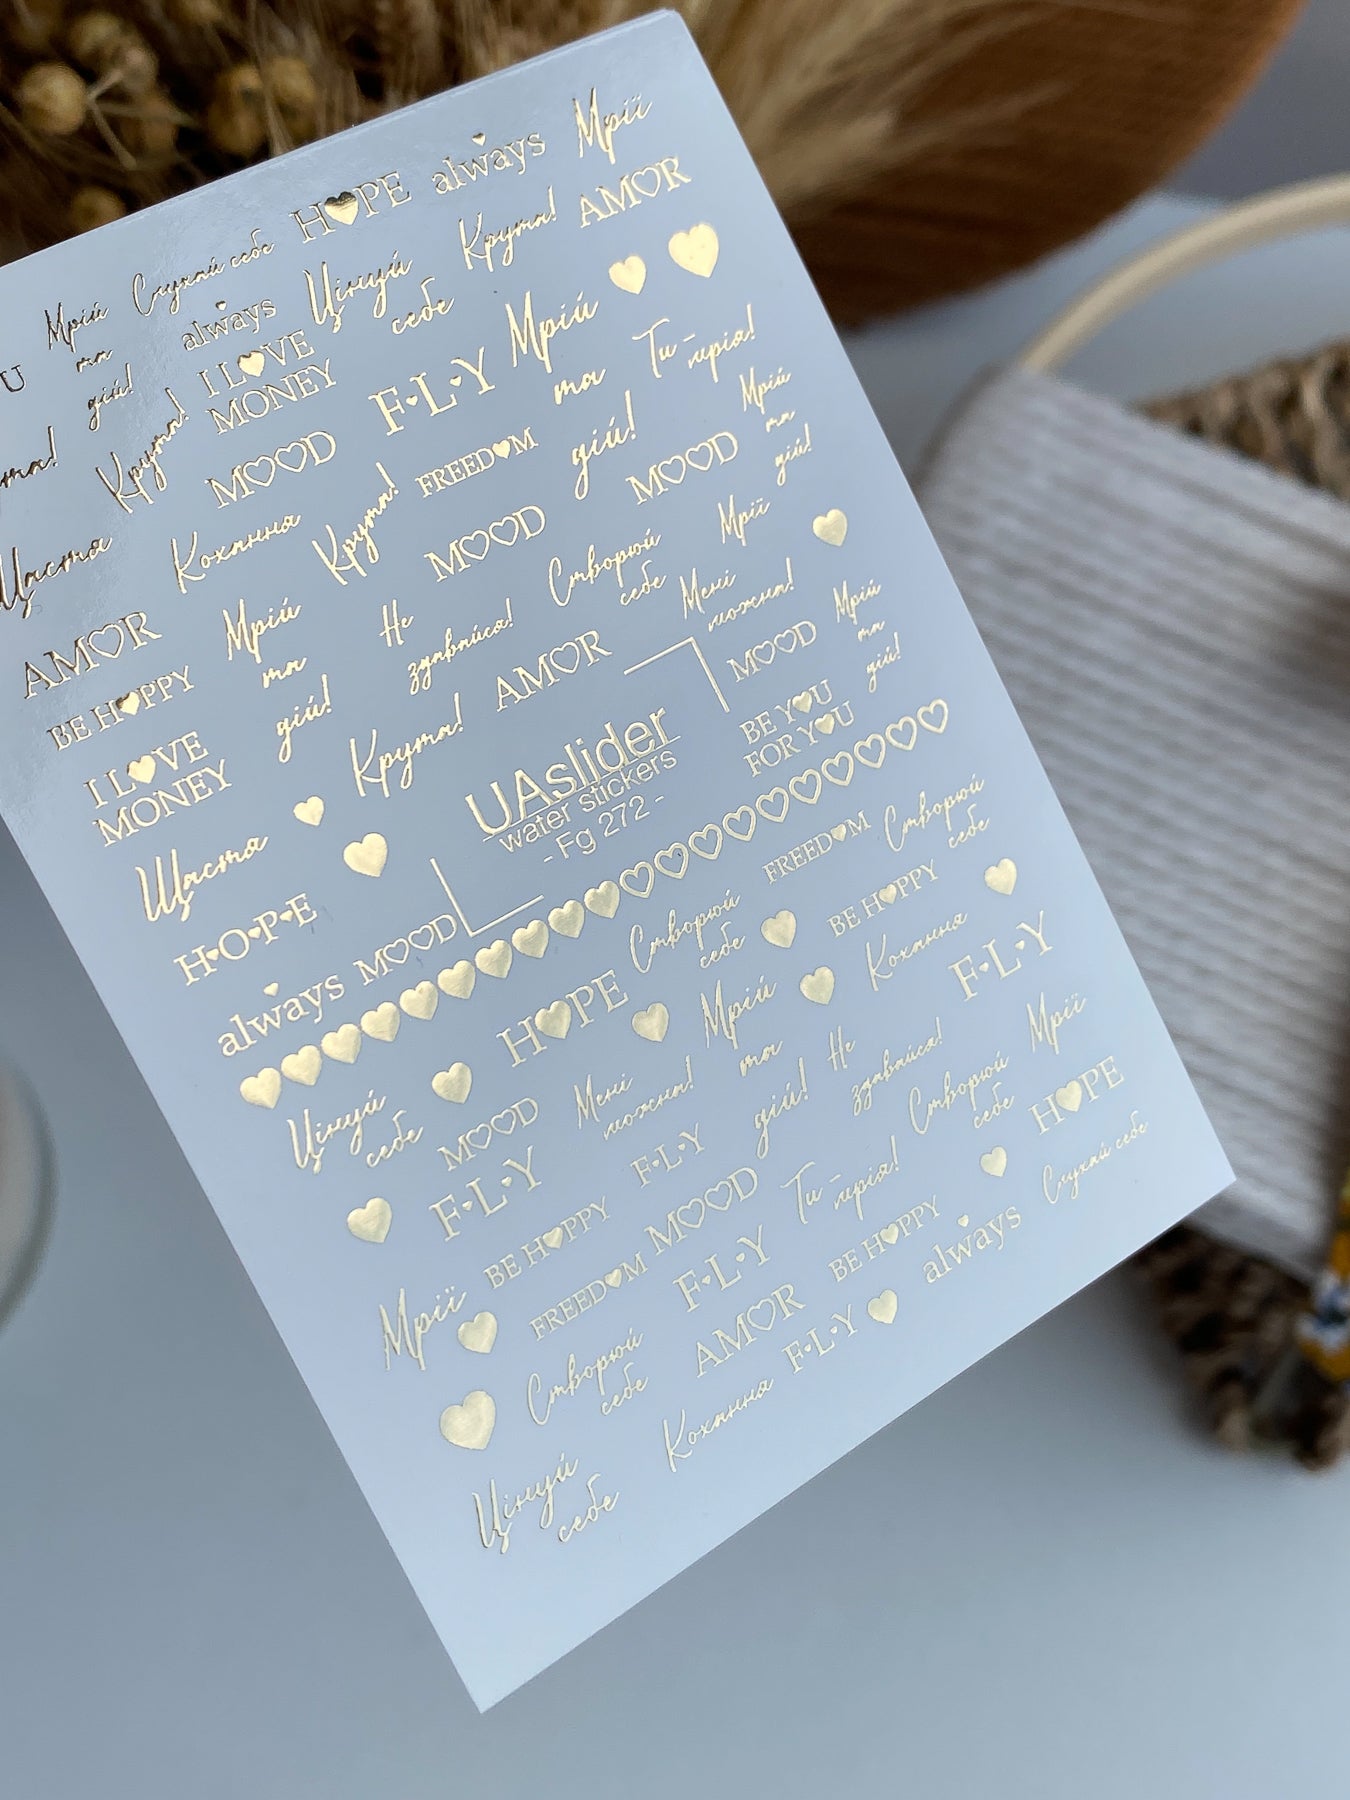 Мрії
always
HOPE
Слухай себе
Мрій
та
дій!
U
AMOR
Крута!
Цінуй
себе
always
I LOVE
MONEY
Крута!
Мрій
та
дій!
F·L·Y
MOOD
Ти - мрія!
Мрій
та
дій!
MOOD
FREEDOM
Крута!
Кохання
Щастя
MOOD
Мрії
Створюй
себе
Не
здавайся!
Мрій
та
дій!
AMOR
BE HAPPY
I LOVE
MONEY
Мені
можна!
Мрій
та
дій!
MOOD
AMOR
Крута!
BE YOU
FOR YOU
UAslider
water stickers
- Fg 272 -
Щастя
H·O·P·E
always
MOOD
Створюй
себе
FREEDOM
BE HAPPY
Створюй
себе
HOPE
Кохання
F·L·Y
Мрій
та
дій!
Мені
можна!
Цінуй
себе
MOOD
F·L·Y
Не
здавайся!
Мрії
Створюй
себе
HOPE
F·L·Y
BE HAPPY
MOOD
Ти - мрія!
Слухай себе
Мрії
FREEDOM
F·L·Y
BE HAPPY
always
Створюй
себе
AMOR
F·L·Y
Кохання
Цінуй
себе